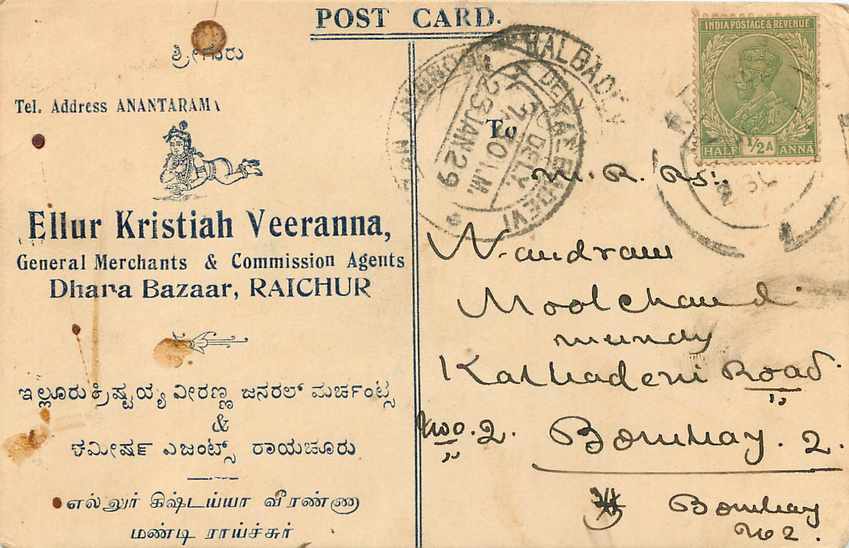 POST CARD.
ಶ್ರೀಗುರು
Tel. Address ANANTARAM
Ellur Kristiah Veeranna,
General Merchants & Commission Agents
Dhara Bazaar, RAICHUR
ಇಲ್ಲೂರುಕ್ರಿಷ್ಟಯ್ಯ ವೀರಣ್ಣ ಜನರಲ್ ಮರ್ಚಂಟ್ಸ
&
ಕಮೀಷರ್ ಎಜಂಟ್ಸ್ ರಾಯಚೂರು
எல்லூர் கிஷ்டய்யா வீரண்ணு
மண்டி ராய்ச்சூர்
KALBADEVI
23 JAN 29
INDIA POSTAGE & REVENUE
HALF ½A ANNA
To
M. R. Rs.
Nandram
Moolchand
Kalbadevi Road
No. 2. Bombay. 2.
Bombay
No 2.